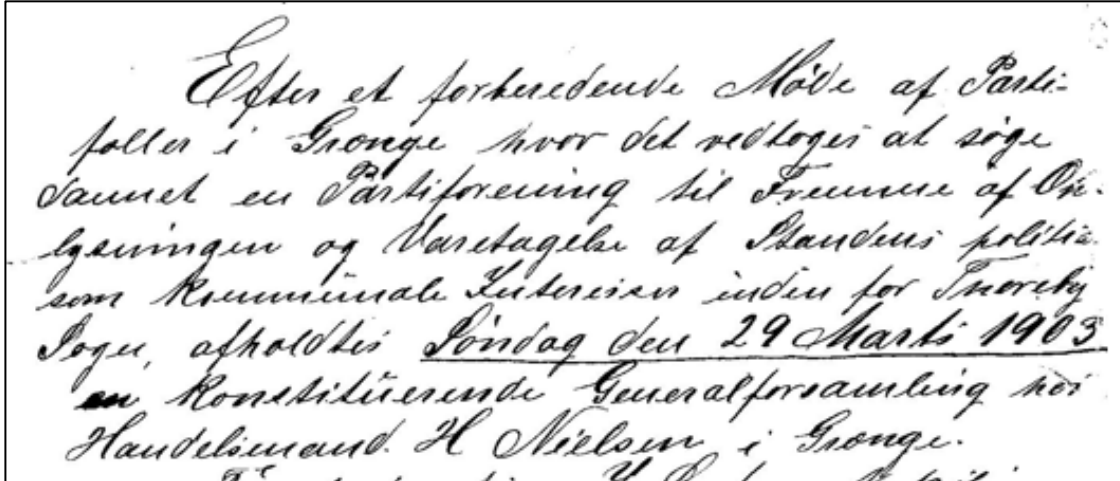 Efter et forberedende Møde af Parti-
fæller i Grænge hvor det vedtoges at søge
dannet en Partiforening til Fremme af Op-
lysningen og Varetagelse af Standens politis
som kommunale Interesser inden for Thoreby
Sogn, afholdtes Søndag den 29 Marts 1903
en konstituerende Generalforsamling hos
Handelsmand. H Nielsen i Grænge.